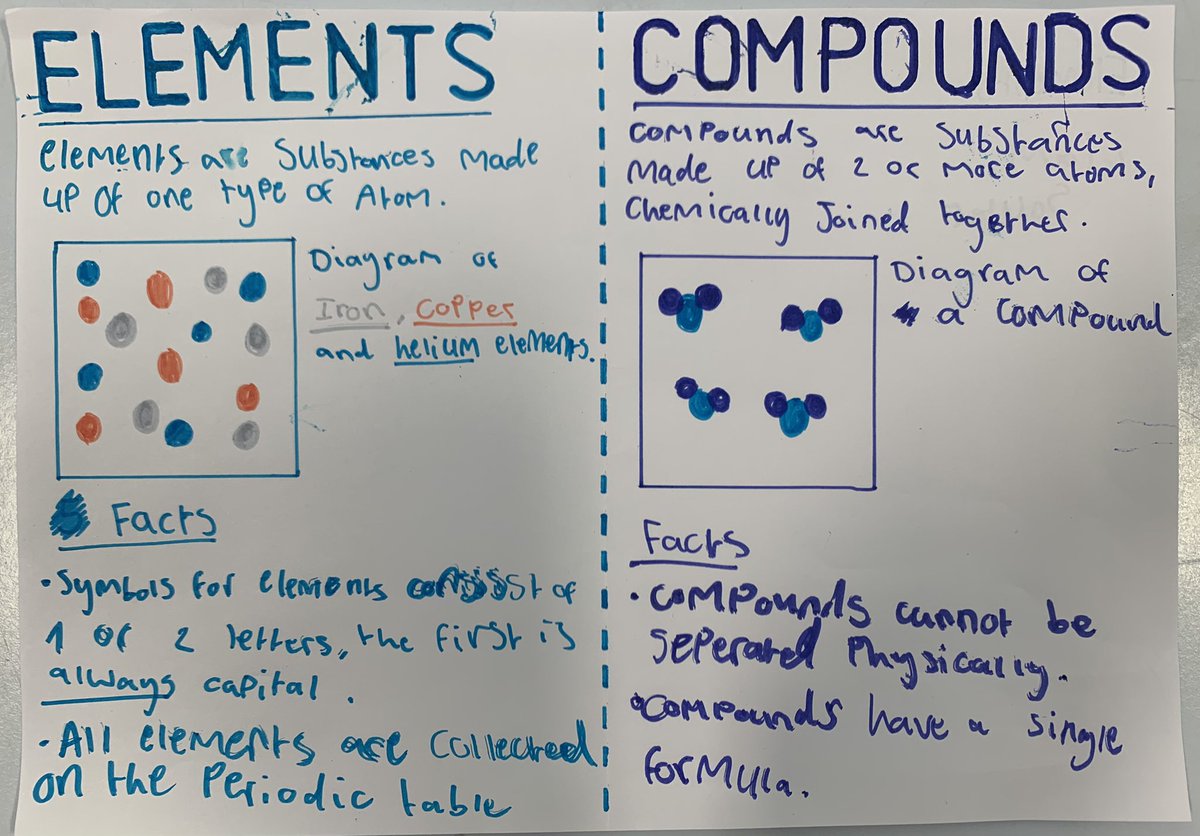 ELEMENTS
elements are substances made
up of one type of Atom.
Diagram of
Iron, Copper
and helium elements.
Facts
• Symbols for elements consist of
1 or 2 letters, the first is
always capital.
• All elements are collected
on the Periodic table
COMPOUNDS
compounds are substances
made up of 2 or more atoms,
chemically Joined together.
Diagram of
a compound
Facts
• compounds cannot be
seperated Physically.
• compounds have a single
formula.